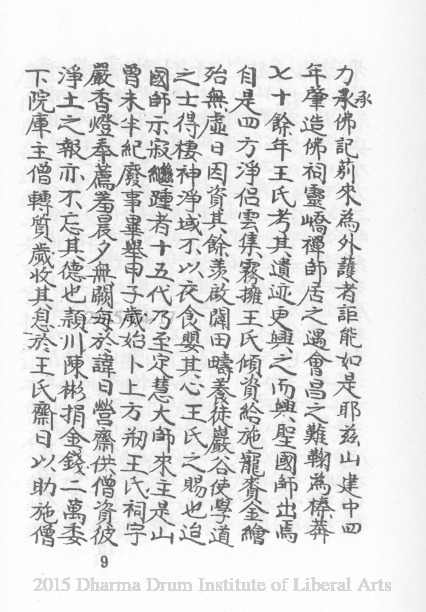 力承佛記荊來為外護者詎能如是耶茲山建中四
承
年肇造佛祠靈嶠禪師居之遇會昌之難鞠為榛莽
七十餘年王氏考其遺迹更興之而興聖國師出焉
自是四方淨侶雲集霧擁王氏傾資給施寵賚金繒
殆無虛日因資其餘羨啟闢田疇養徒巖谷使學道
之士得棲神淨域不以衣食嬰其心王氏之賜也迨
國師示寂繼踵者十五代乃至定慧大師來主是山
曾未半紀廢事畢舉甲子歲始卜上方剏王氏祠宇
嚴香燈奉薦羞晨夕無闕每於諱日營齋供僧資彼
淨土之報亦不忘其德也潁川陳彬捐金錢二萬委
下院庫主僧轉質歲收其息於王氏齋日以助施僧
9
2015 Dharma Drum Institute of Liberal Arts